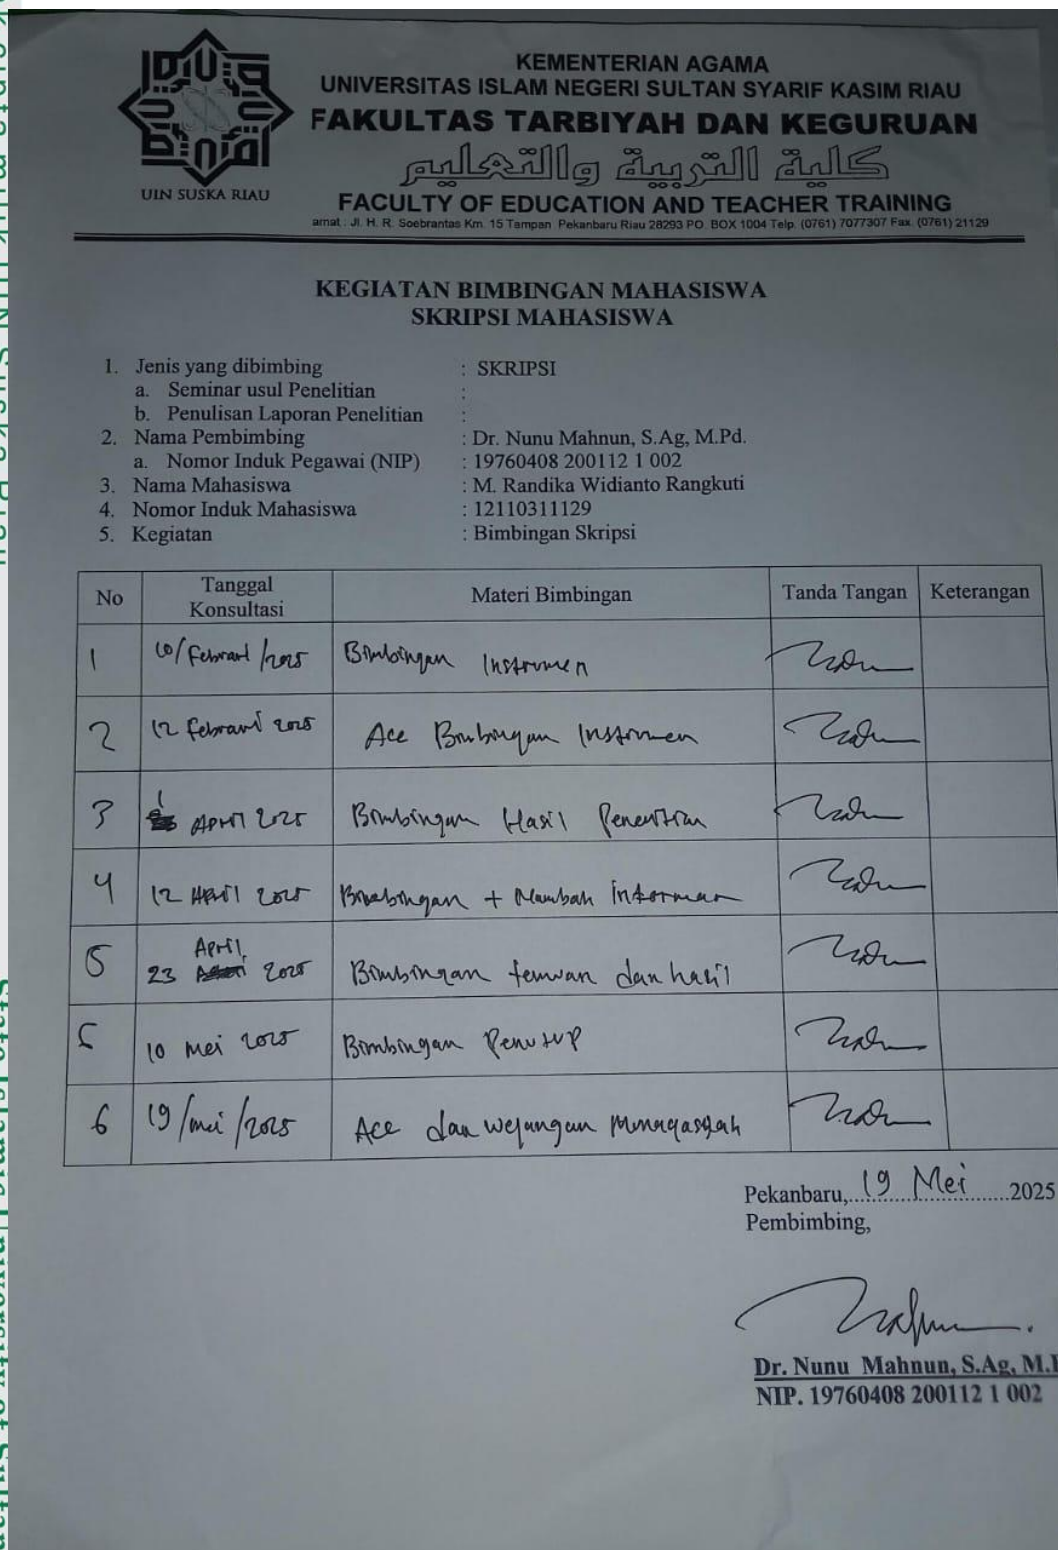 KEMENTERIAN AGAMA
UNIVERSITAS ISLAM NEGERI SULTAN SYARIF KASIM RIAU
FAKULTAS TARBIYAH DAN KEGURUAN
كلية التربية والتعليم
FACULTY OF EDUCATION AND TEACHER TRAINING
amat : Jl. H. R. Soebrantas Km. 15 Tampan Pekanbaru Riau 28293 PO. BOX 1004 Telp. (0761) 7077307 Fax. (0761) 21129
UIN SUSKA RIAU
KEGIATAN BIMBINGAN MAHASISWA
SKRIPSI MAHASISWA
1. Jenis yang dibimbing : SKRIPSI
a. Seminar usul Penelitian :
b. Penulisan Laporan Penelitian :
2. Nama Pembimbing : Dr. Nunu Mahnun, S.Ag, M.Pd.
a. Nomor Induk Pegawai (NIP) : 19760408 200112 1 002
3. Nama Mahasiswa : M. Randika Widianto Rangkuti
4. Nomor Induk Mahasiswa : 12110311129
5. Kegiatan : Bimbingan Skripsi
No Tanggal Konsultasi Materi Bimbingan Tanda Tangan Keterangan
1 10/Februari/2025 Bimbingan Instrumen
2 12 Februari 2025 Acc Bimbingan Instrumen
3 1 April 2025 Bimbingan Hasil Penelitian
4 12 April 2025 Bimbingan + Nambah informan
5 23 April 2025 Bimbingan temuan dan hasil
5 10 Mei 2025 Bimbingan Penutup
6 19/mei/2025 Acc dan wejangan Munaqasyah
Pekanbaru, 19 Mei 2025
Pembimbing,
Dr. Nunu Mahnun, S.Ag, M.P
NIP. 19760408 200112 1 002